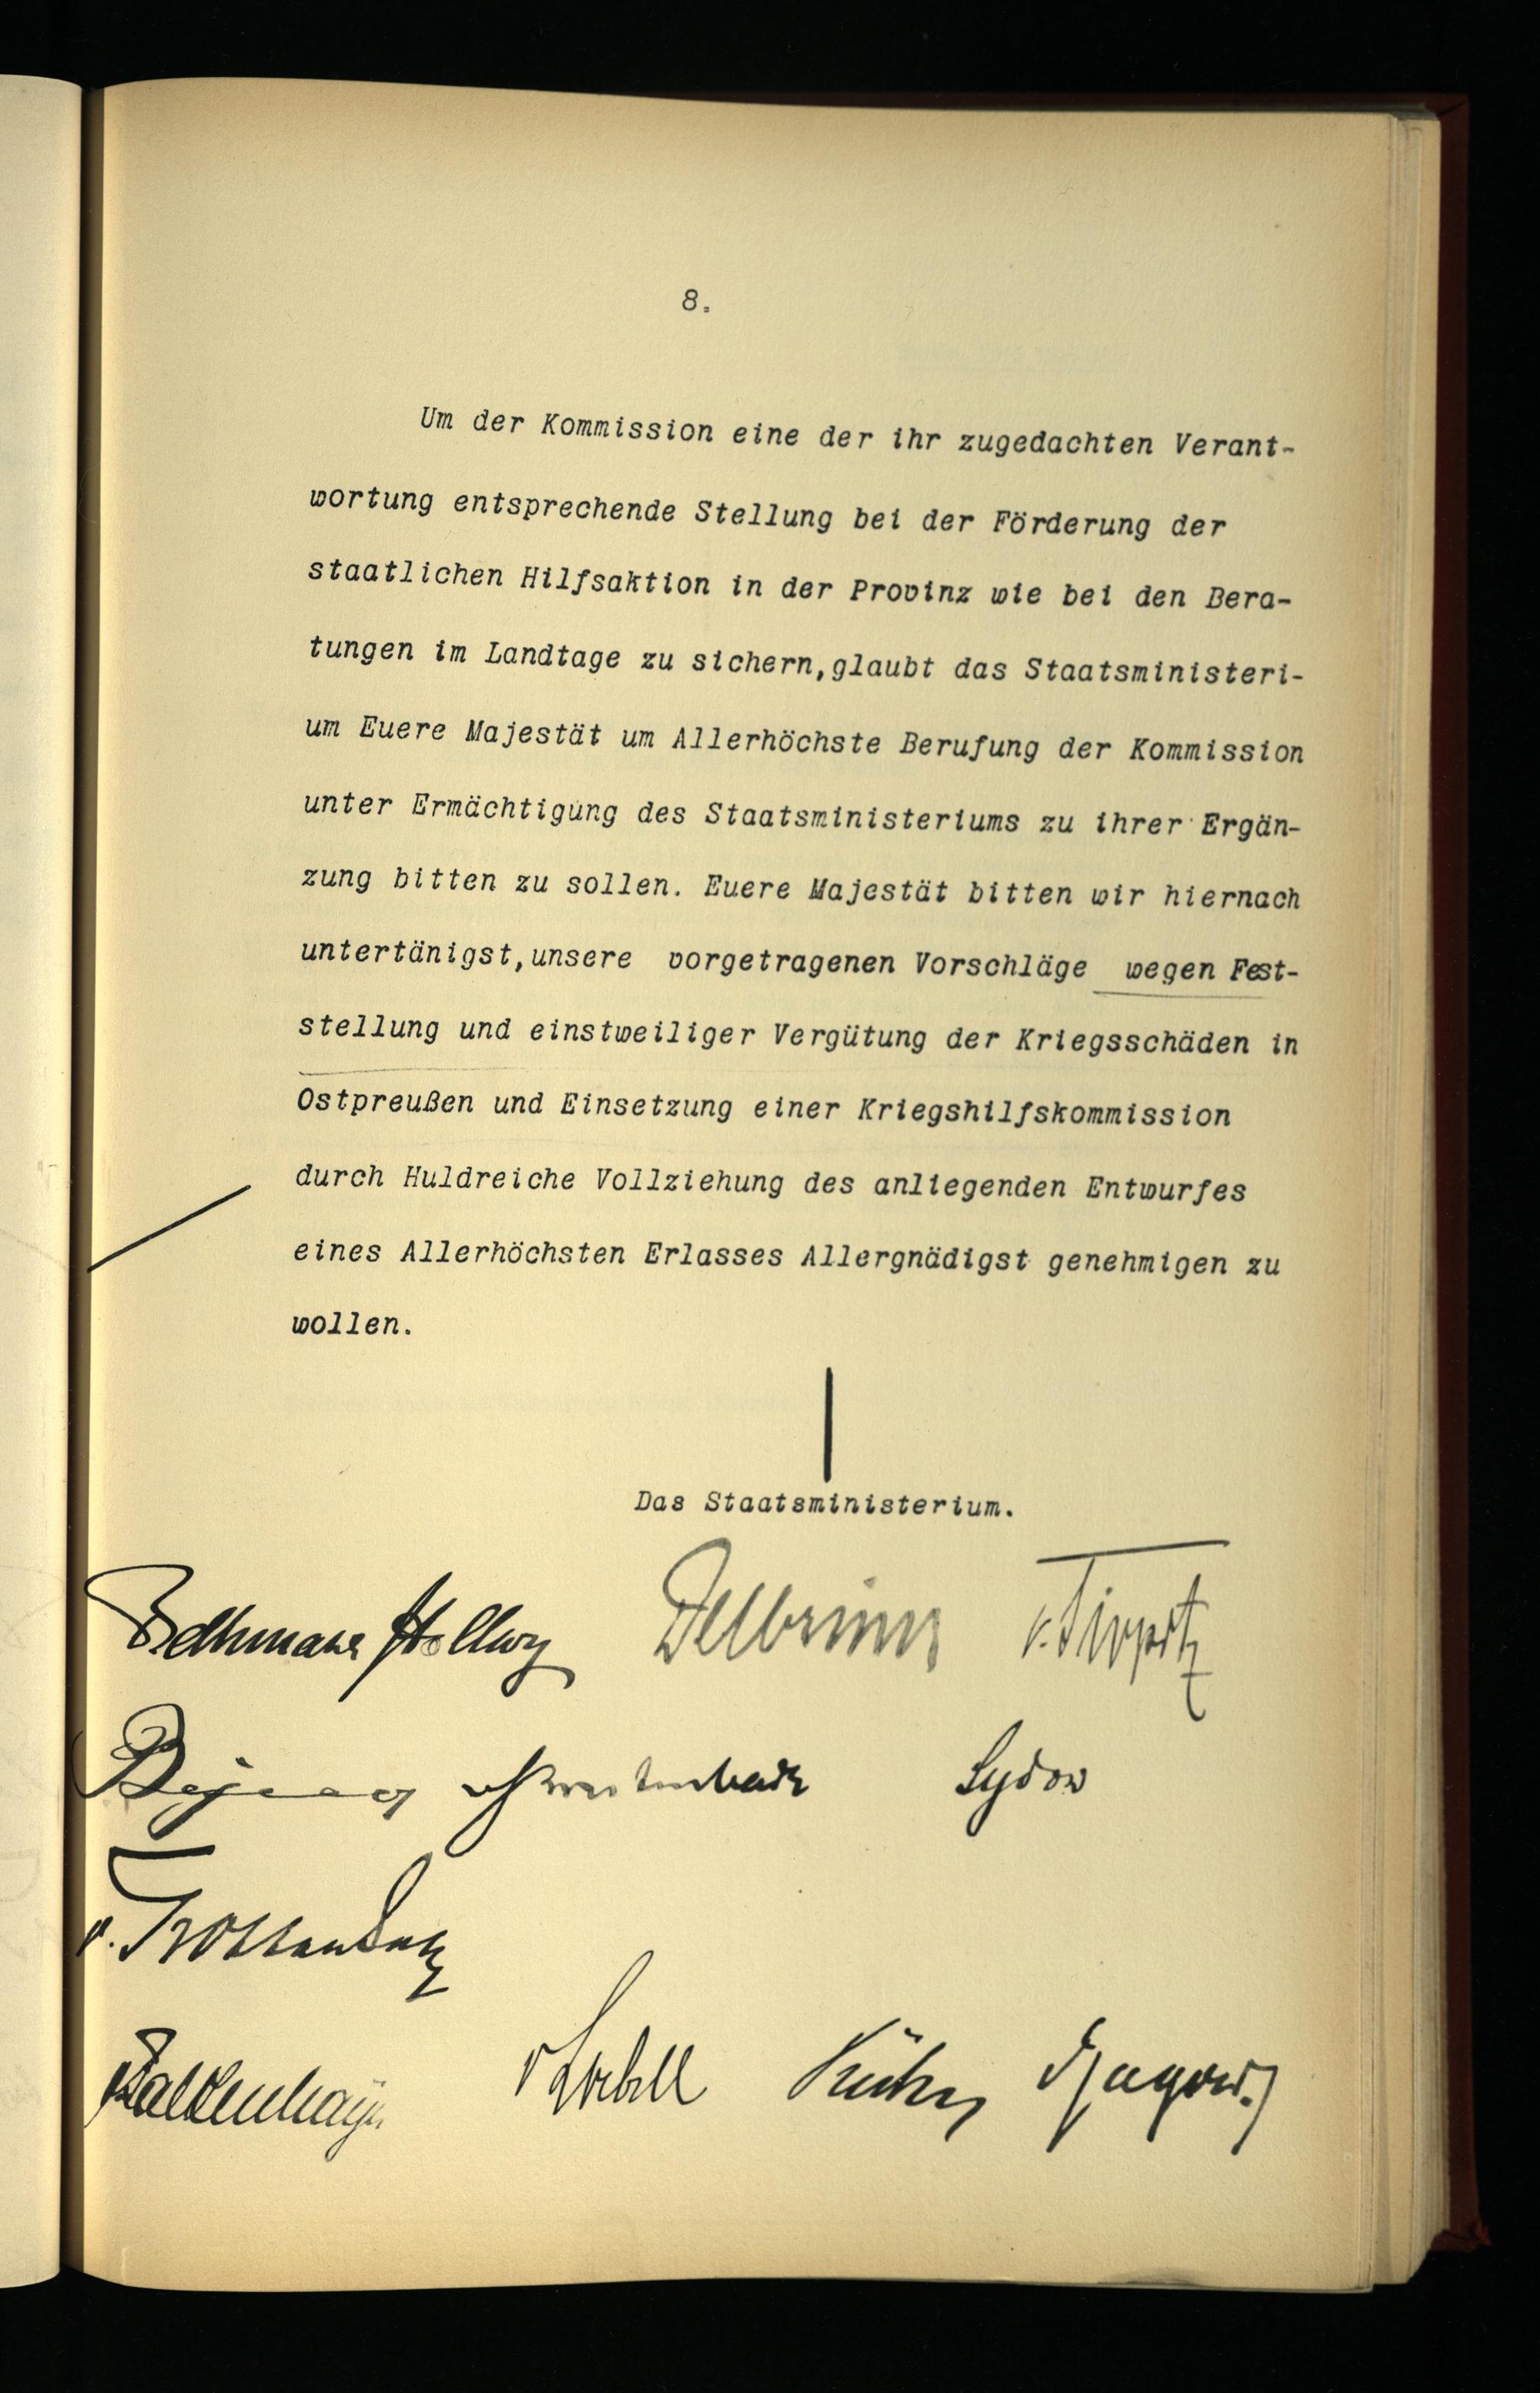 8.
Um der Kommission eine der ihr zugedachten Verant-
wortung entsprechende Stellung bei der Förderung der
staatlichen Hilfsaktion in der Provinz wie bei den Bera-
tungen im Landtage zu sichern, glaubt das Staatsministeri-
um Euere Majestät um Allerhöchste Berufung der Kommission
unter Ermächtigung des Staatsministeriums zu ihrer Ergän-
zung bitten zu sollen. Euere Majestät bitten wir hiernach
untertänigst, unsere vorgetragenen Vorschläge wegen Fest-
stellung und einstweiliger Vergütung der Kriegsschäden in
Ostpreußen und Einsetzung einer Kriegshilfskommission
durch Huldreiche Vollziehung des anliegenden Entwurfes
eines Allerhöchsten Erlasses Allergnädigst genehmigen zu
wollen.
Das Staatsministerium.
Bethmann Hollweg Delbrück v. Tirpitz
Beseler v Breitenbach Sydow
v. Trott zu Solz
v Falkenhayn v Loebell Kühn v Jagow.